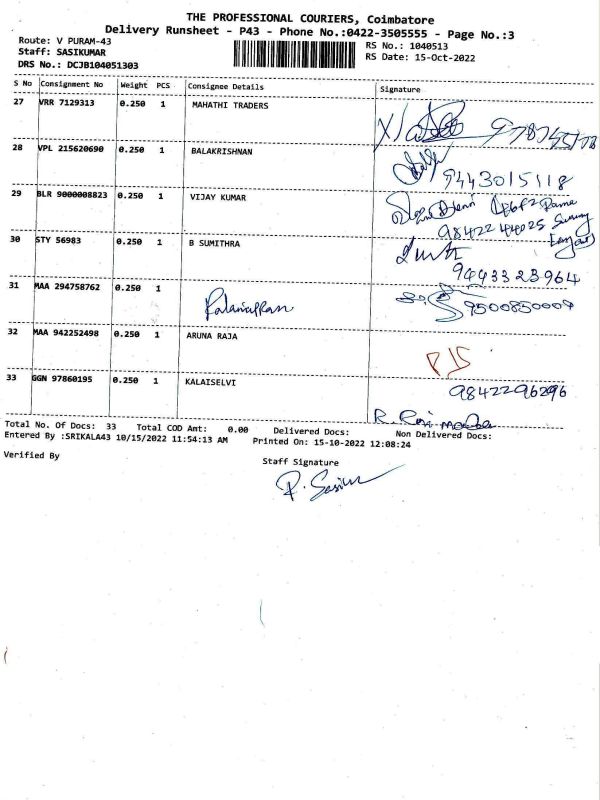 THE PROFESSIONAL COURIERS, Coimbatore
Delivery Runsheet - P43 - Phone No.:0422-3505555 - Page No.:3
Route: V PURAM-43
RS No.: 1040513
Staff: SASIKUMAR
RS Date: 15-Oct-2022
DRS No.: DCJB104051303
S No Consignment No Weight PCS Consignee Details Signature
27 VRR 7129313 0.250 1 MAHATHI TRADERS
28 VPL 215620690 0.250 1 BALAKRISHNAN
9443015118
29 BLR 9000008823 0.250 1 VIJAY KUMAR
98422 44025
30 STY 56983 0.250 1 B SUMITHRA
9443323964
31 MAA 294758762 0.250 1
9500850009
32 MAA 942252498 0.250 1 ARUNA RAJA
33 GGN 97860195 0.250 1 KALAISELVI
9842296296
Total No. Of Docs: 33 Total COD Amt: 0.00 Delivered Docs: Non Delivered Docs:
Entered By :SRIKALA43 10/15/2022 11:54:13 AM Printed On: 15-10-2022 12:08:24
Verified By
Staff Signature